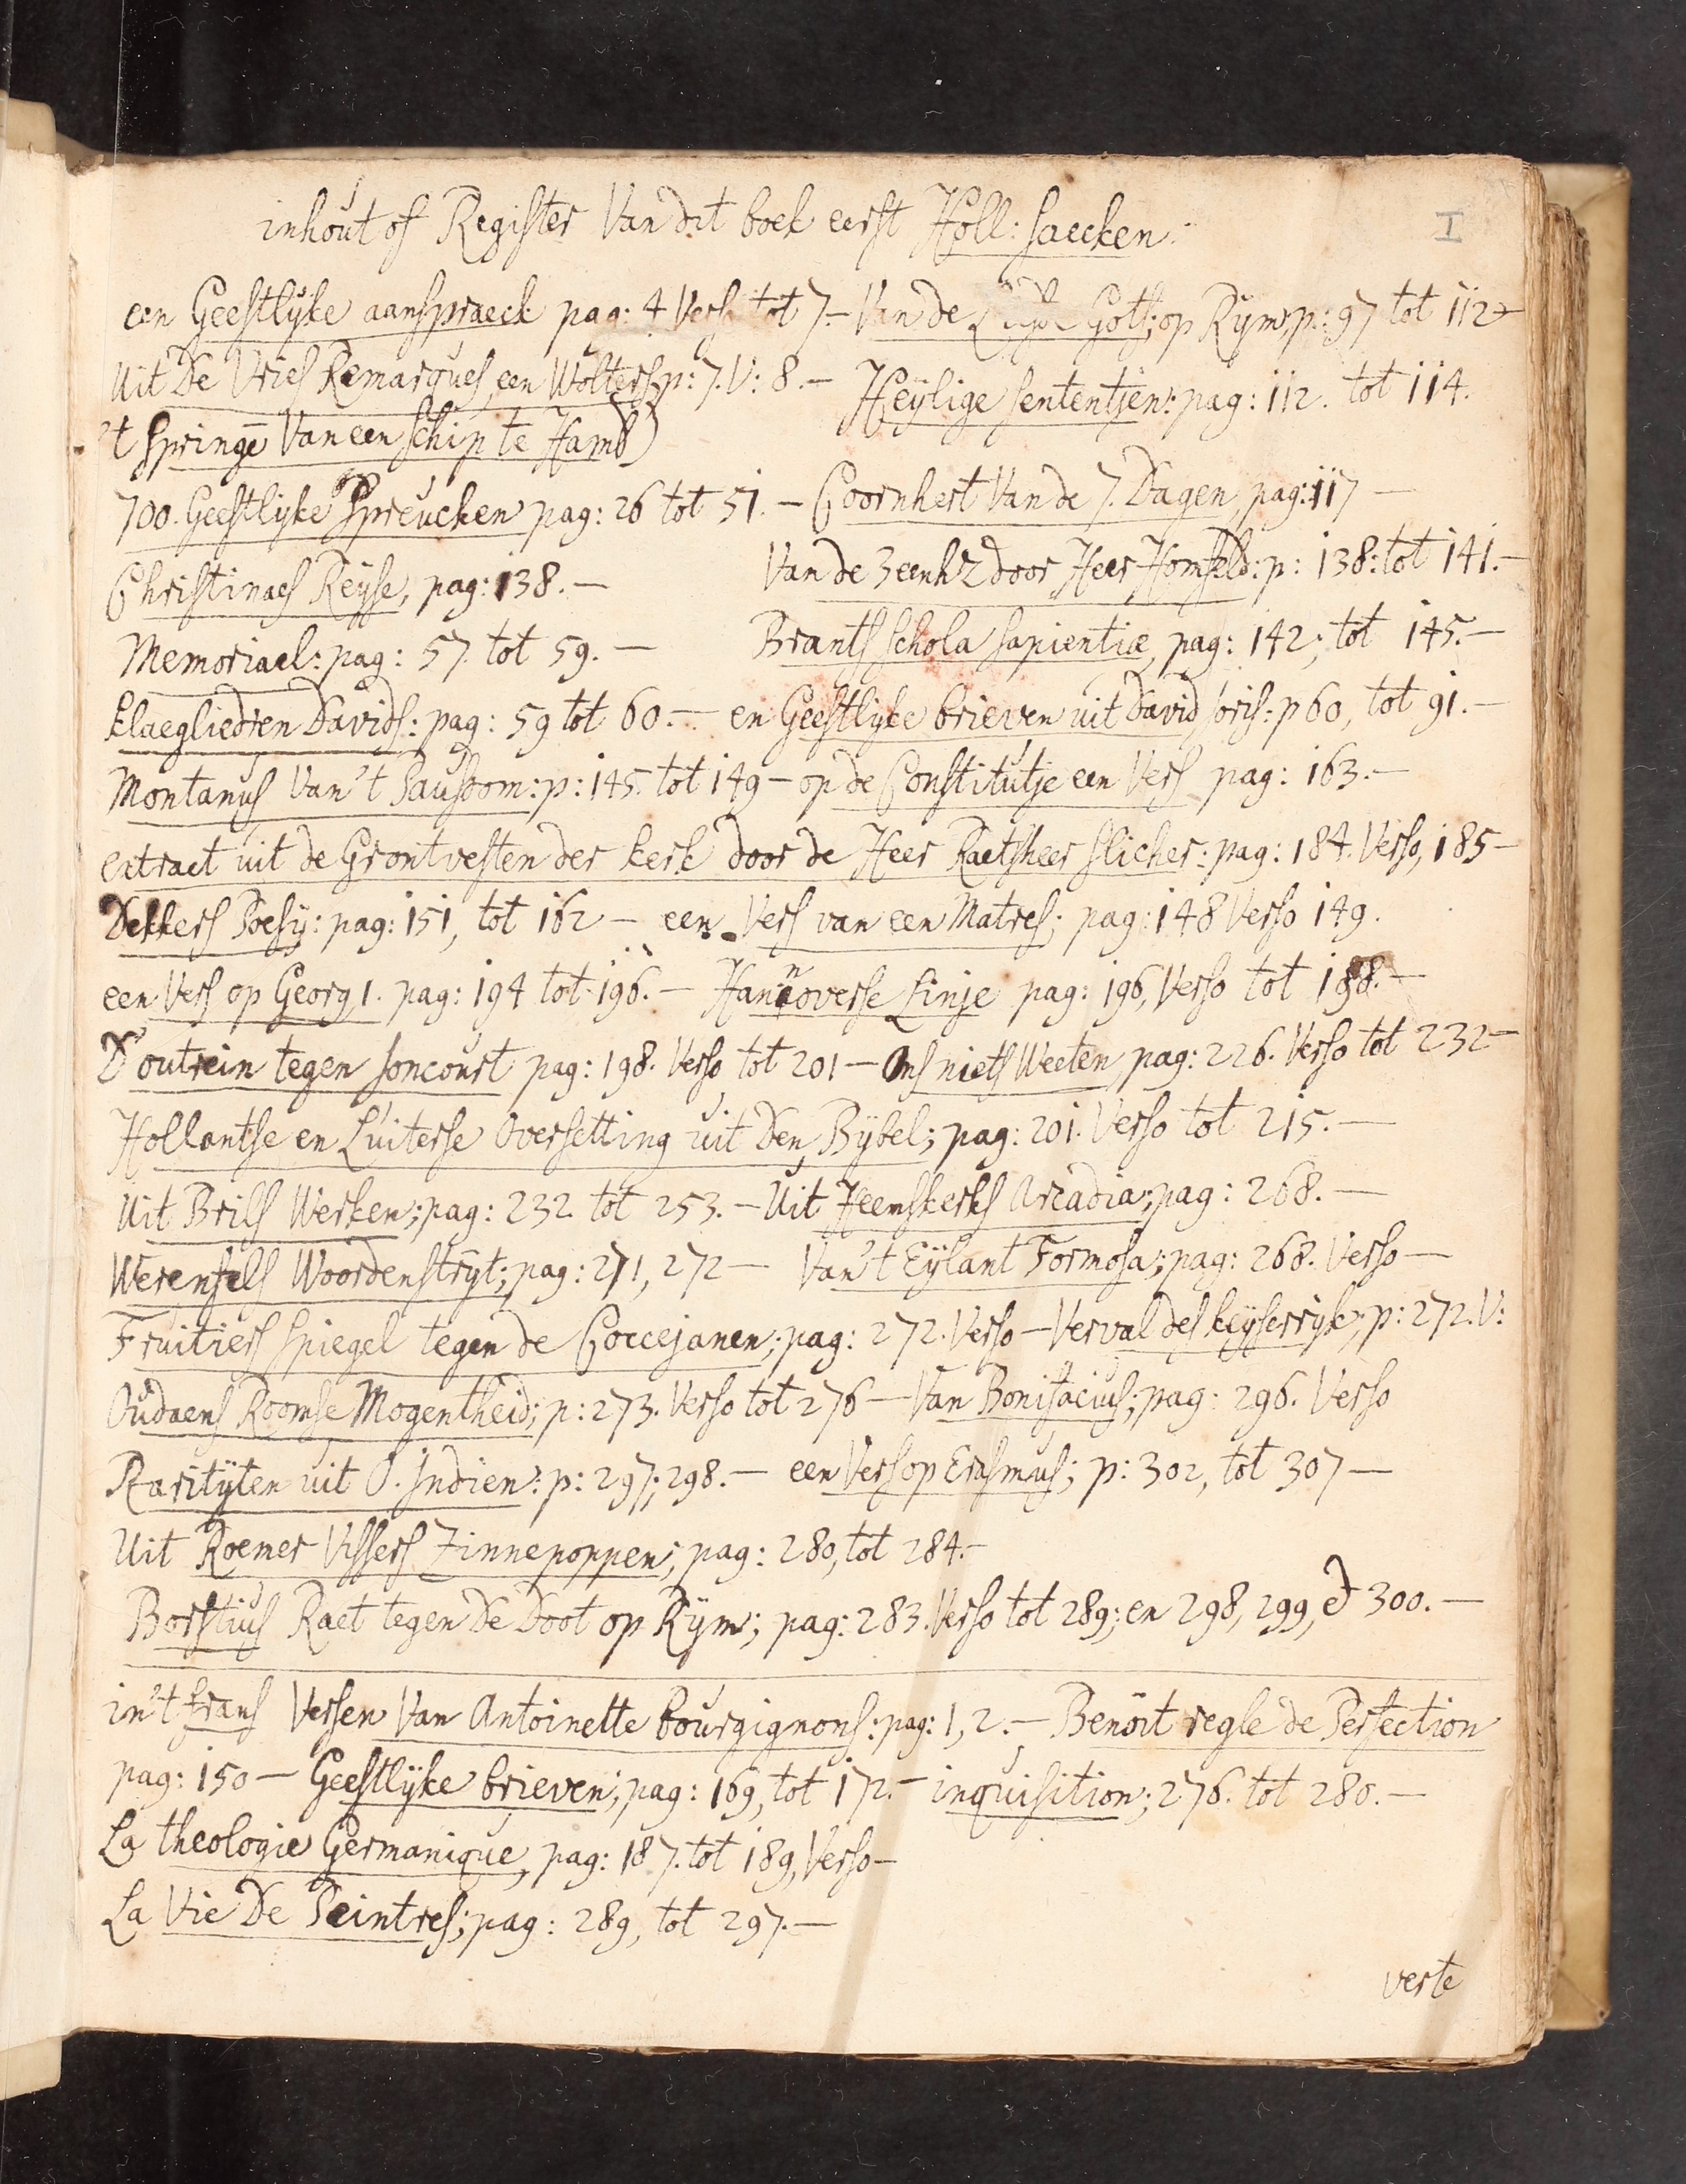 inhout of Register Van dit boek eerst Holl: saecken.
I
een Geestlyke aanspraeck pag: 4 Vers tot 7.– Van de Gots; op Rym, p: 97 tot 112
Uit De Vries Remarques, een Wolters p: 7. V: 8.– Heylige sententjen: pag: 112. tot 114.
't springē Van een schip te Hamb
700. Geestlyke Spreucken pag: 26 tot 51.– Coornhert Van de 7. Dagen, pag: 117 –
Christinaes Reyse, pag: 138.– Van de 3 eenh door Heer Homfeld: p: 138: tot 141.–
Memoriael: pag: 57. tot 59.– Brants schola sapientiæ, pag: 142, tot 145.–
klaegliedren Davids: pag: 59 tot 60.– en Geestlyke brieven uit David joris: p 60, tot 91.–
Montanus Van't Pausdom: p: 145. tot 149 – op de Constitutje een Vers pag: 163.–
extract uit de Grontvesten der kerk door de Heer Raetsheer slicher: pag: 184. Verso, 185 –
Dekkers Poesy: pag: 151, tot 162 – een Vers van een Matres; pag: 148 Verso 149.
een Vers op Georg, 1. pag: 194 tot 196.– Hannoverse Linje pag: 196, Verso tot 198.–
D'outrein tegen joncourt pag: 198. Verso tot 201 – Ons niets Weeten, pag: 226. Verso tot 232 –
Hollantse en Luiterse Oversetting uit Den Bybel; pag: 201. Verso tot 215.–
Uit Brils Werken; pag: 232 tot 253.– Uit Heemskerks Arcadia; pag: 268.–
Werenfels Woordenstryt; pag: 271, 272 – Van't Eylant Formosa; pag: 268. Verso –
Fruitiers spiegel tegen de Coccejanen; pag: 272. Verso – Verval des keyserryk; p: 272. V:
Oudaens Roomse Mogentheid; p: 273. Verso tot 276 – Van Bonifacius; pag: 296. Verso
Rarityten uit O. Indien: p: 297; 298.– een Vers op Erasmus; p: 302, tot 307 –
Uit Roemer Vissers Zinnepoppen; pag: 280, tot 284.–
Borstius Raet tegen De Doot op Rym; pag: 283. Verso tot 289; en 298, 299, & 300.–
in't frans Versen Van Antoinette bourgignons: pag: 1, 2.– Benoit regle de Perfection
pag: 150 – Geestlyke brieven; pag: 169, tot 172.– inquisition; 276. tot 280.–
La theologie Germanique, pag: 187. tot 189, Verso –
La Vie De Peintres; pag: 289, tot 297.–
verte